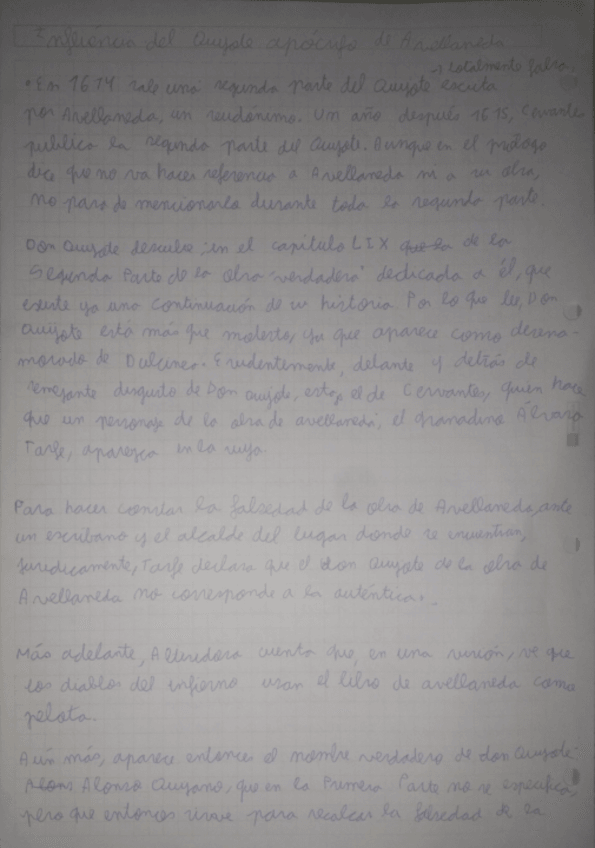 Influencia del Quijote apócrifo de Avellaneda
→ totalmente falsa
• En 1614 sale una segunda parte del Quijote escrita
por Avellaneda, un seudónimo. Un año después 1615, Cervantes
publica la segunda parte del Quijote. Aunque en el prólogo
dice que no va hacer referencia a Avellaneda ni a su obra,
no para de mencionarla durante toda la segunda parte.
Don Quijote descubre, en el capítulo LIX de la
Segunda Parte de la obra "verdadera" dedicada a él, que
existe ya una continuación de su historia. Por lo que lee, Don
Quijote está más que molesto, ya que aparece como desena-
morado de Dulcinea. Evidentemente, delante y detrás de
semejante disgusto de Don Quijote, está el de Cervantes, quien hace
que un personaje de la obra de avellaneda, el granadino Álvaro
Tarfe, aparezca en la suya.
Para hacer constar la falsedad de la obra de Avellaneda, ante
un escribano y el alcalde del lugar donde se encuentran,
juridicamente, Tarfe declara que el Don Quijote de la obra de
Avellaneda no corresponde a la auténtica.
Más adelante, Altisidora cuenta que, en una visión, ve que
los diablos del infierno usan el libro de avellaneda como
pelota.
Aún más, aparece entonces el nombre verdadero de don Quijote:
Alonso Quijano, que en la Primera Parte no se especifica,
pero que entonces sirve para recalcar la falsedad de la